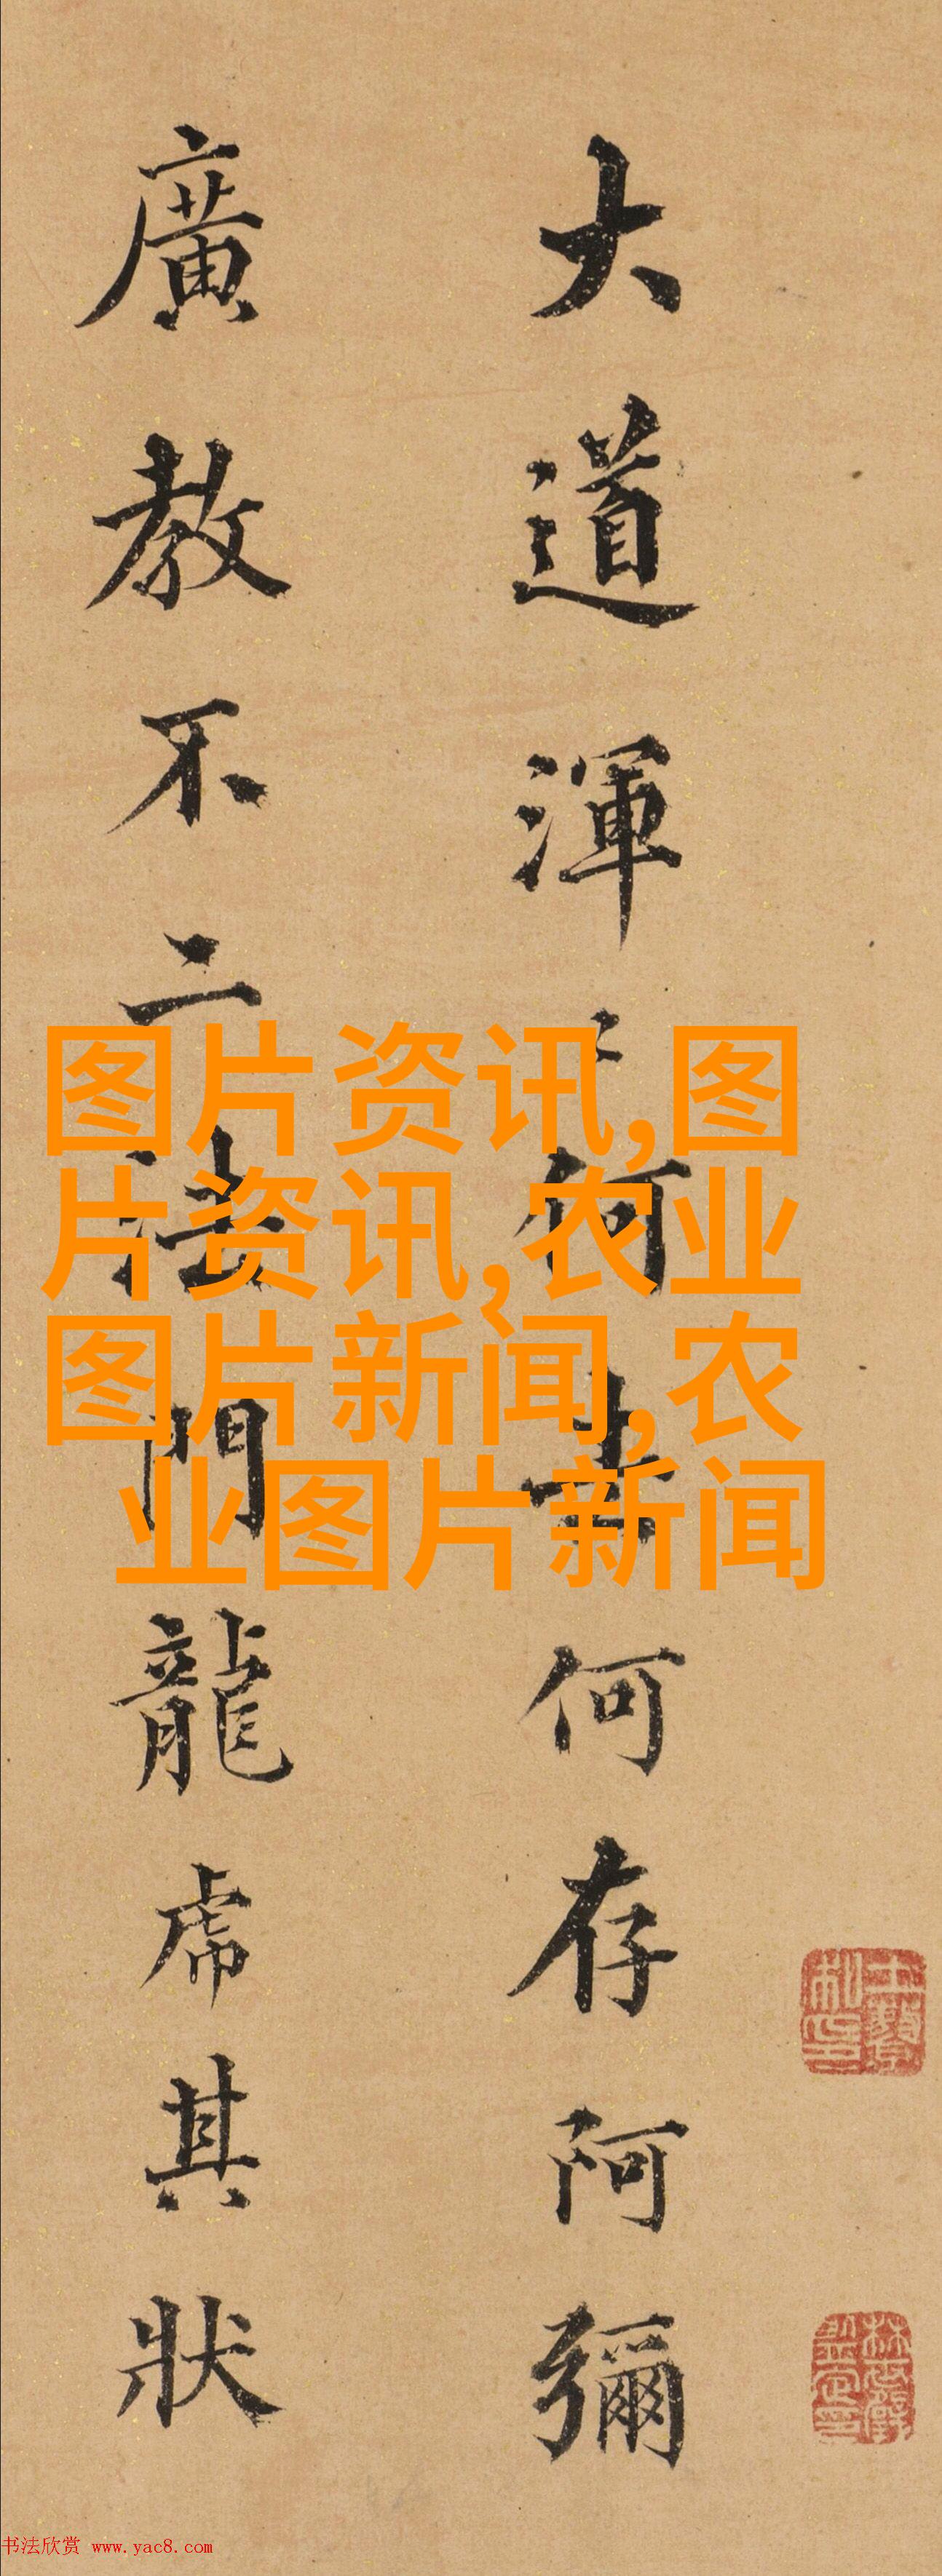 大道渾〻何去何存阿彌
廣教不二法門龍虎其狀
图片资讯,图
片资讯,农业
图片新闻,农
业图片新闻
书法欣赏 www.yac8.com